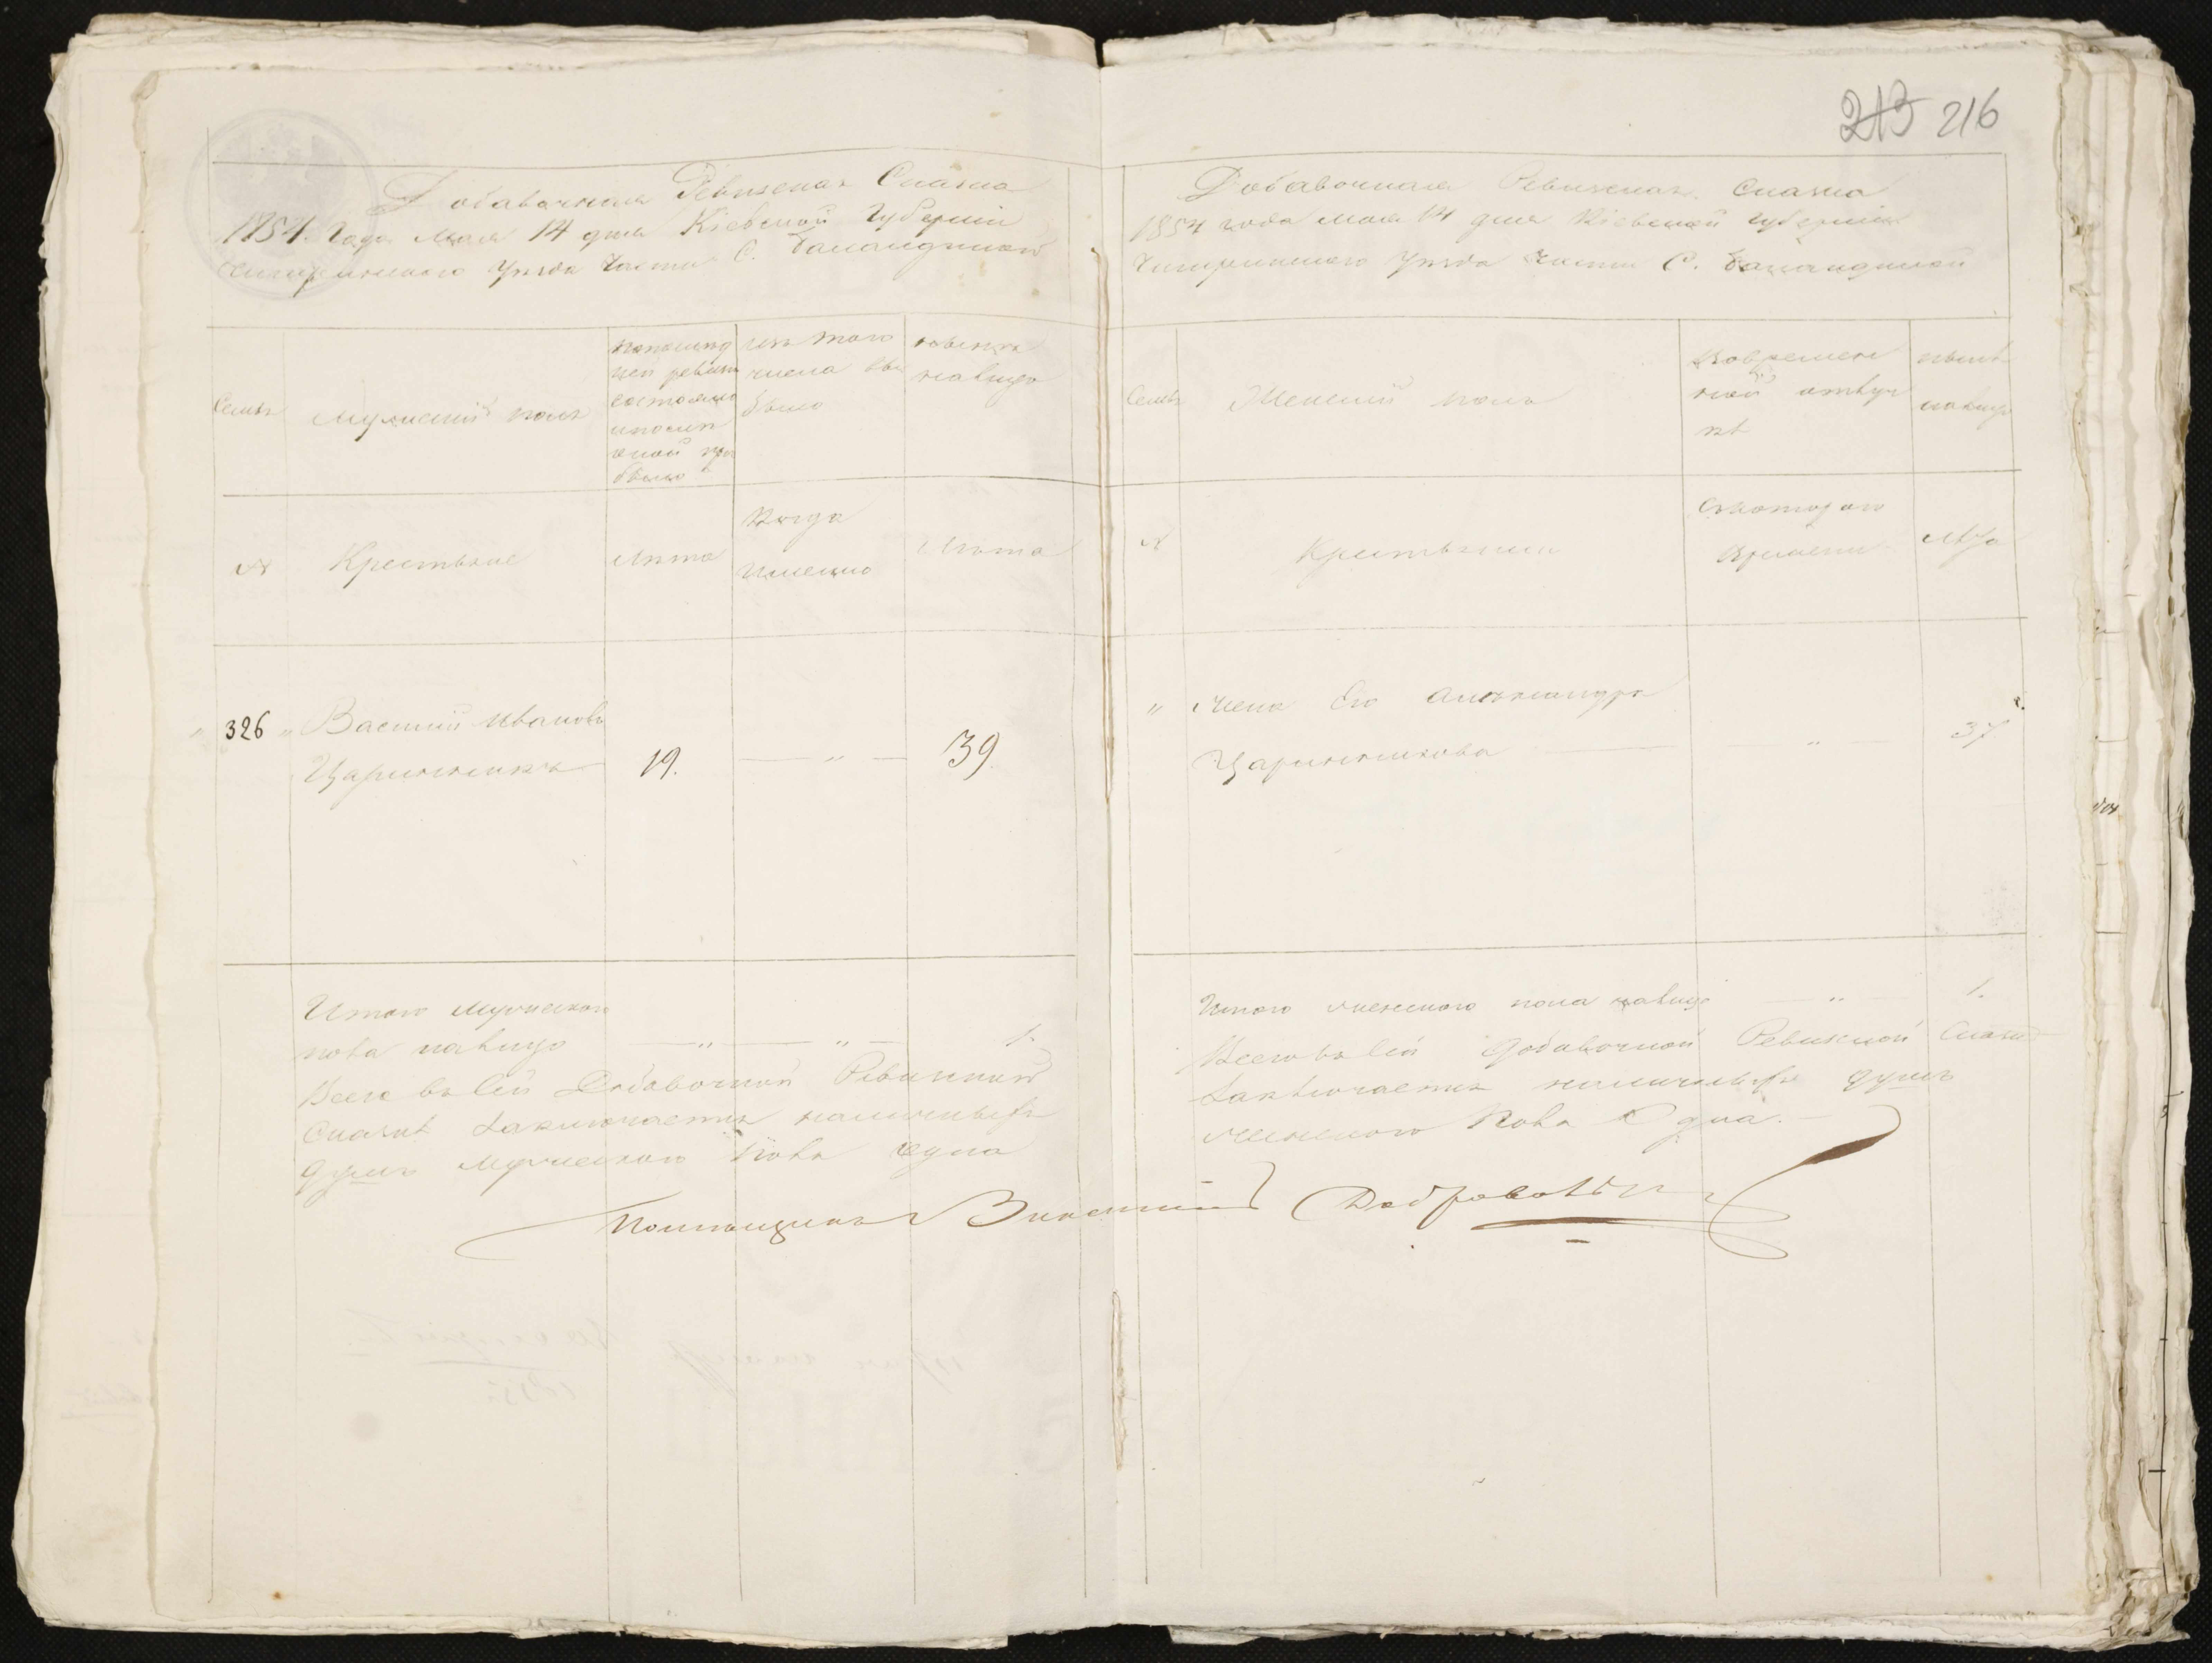 213 216
Добавочная Ревизская Сказка
1854 Года Мая 14 дня Кіевской Губерніи
Чигиринскаго Уезда Части С. Баландиной
Семьи
Мужескій полъ
По послед
ней ревизіи
состояло
и после
оной при
было
изъ того
числа вы
было
ныне
налицо
№
Крестьяне
Лета
Когда
Именно
Лета
326
Василий Ивановъ
Царинникъ
19.
39
Итого Мужескаго
пола налицо 1.
Всего въ сей Добавочной Ревизской
Сказке Заключается наличныхъ
душъ Мужескаго пола одна
Добавочная Ревизская Сказка
1854 года Мая 14 дня Кіевской Губерніи
Чигиринскаго Уезда Части С. Баландиной
Семьи
Женскій полъ
Во времен
ной отлуч
кѣ
ныне
налицо
№
Крестьянки
Съ котораго
Времени
Лѣта
" Жена Его Александра
Царинникова
37
Итого женскаго пола налицо " 1.
Всего въ сей добавочной Ревизской Сказке
Заключается наличныхъ душъ
женскаго пола Одна.
Помещикъ Викентій